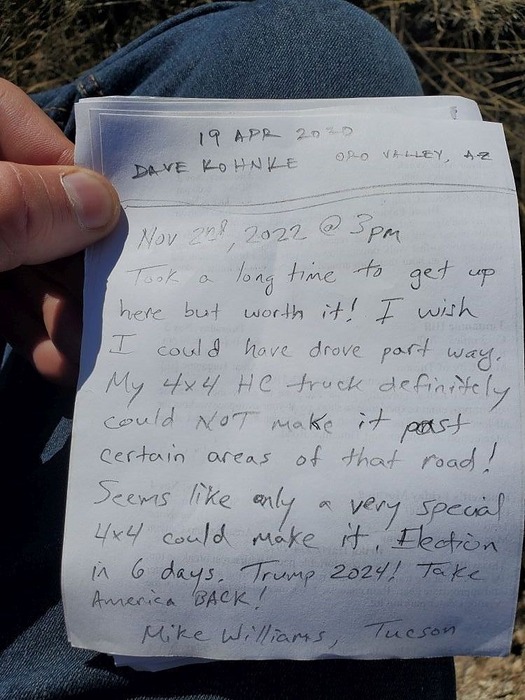 19 APR 2020
DAVE KOHNKE ORO VALLEY, AZ
Nov 2nd, 2022 @ 3pm
Took a long time to get up
here but worth it! I wish
I could have drove part way.
My 4x4 HC truck definitely
could NOT make it past
certain areas of that road!
Seems like only a very special
4x4 could make it. Election
in 6 days. Trump 2024! Take
America BACK!
Mike Williams, Tucson